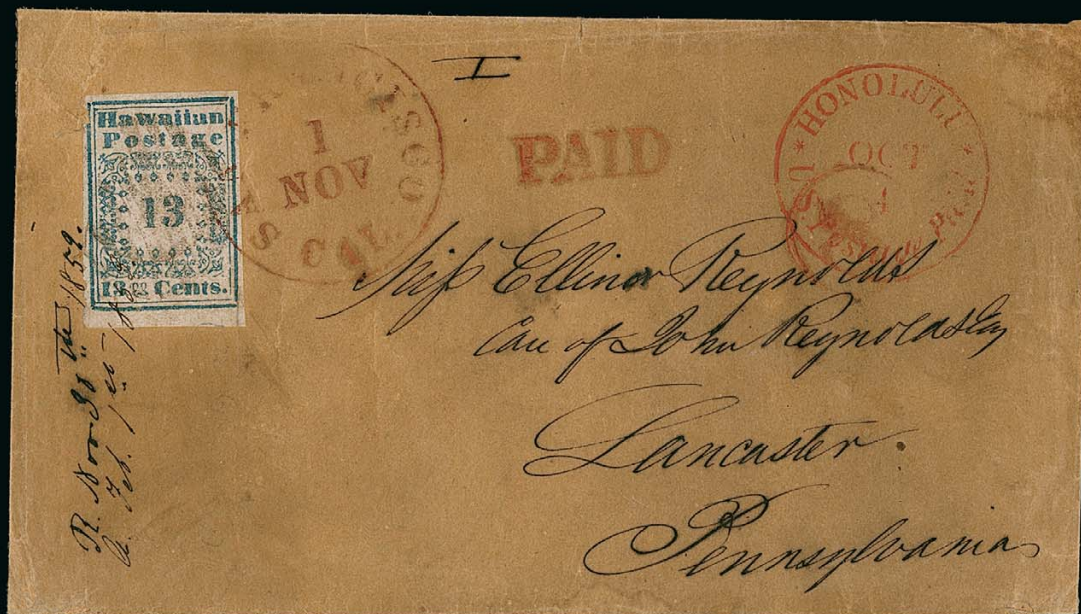 I
Hawaiian
Postage
13
13 Cents.
CISCO
1
NOV
CAL
PAID
* HONOLULU *
OCT
1
U.S. Postage Paid
Miss Ellinor Reynolds
Care of John Reynolds Esq
Lancaster
Pennsylvania
R. Nov 30th 1852.
a. Feb. 1st